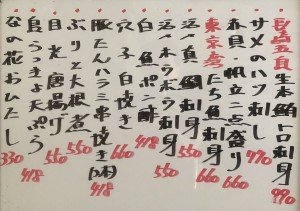 長崎五島 生本鮪トロ刺身 990
サメのハツ刺し 770
赤貝・帆立二点盛り 660
東京湾 たち魚刺身 660
活〆真鯛刺身 550
活〆ホウボウ刺身 550
白魚ポン酢 418
穴子白焼き 660
豚たんハラミ串焼き 418
ぶりと大根煮 550
目光唐揚げ 550
島らっきょ天ぷら 418
なの花おひたし 330